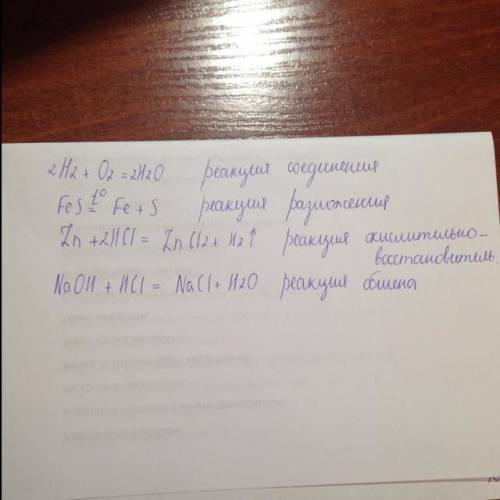 2H2 + O2 = 2H2O реакция соединения
FeS t°= Fe + S реакция разложения
Zn + 2HCl = ZnCl2 + H2↑ реакция окислительно-
восстановитель
NaOH + HCl = NaCl + H2O реакция обмена